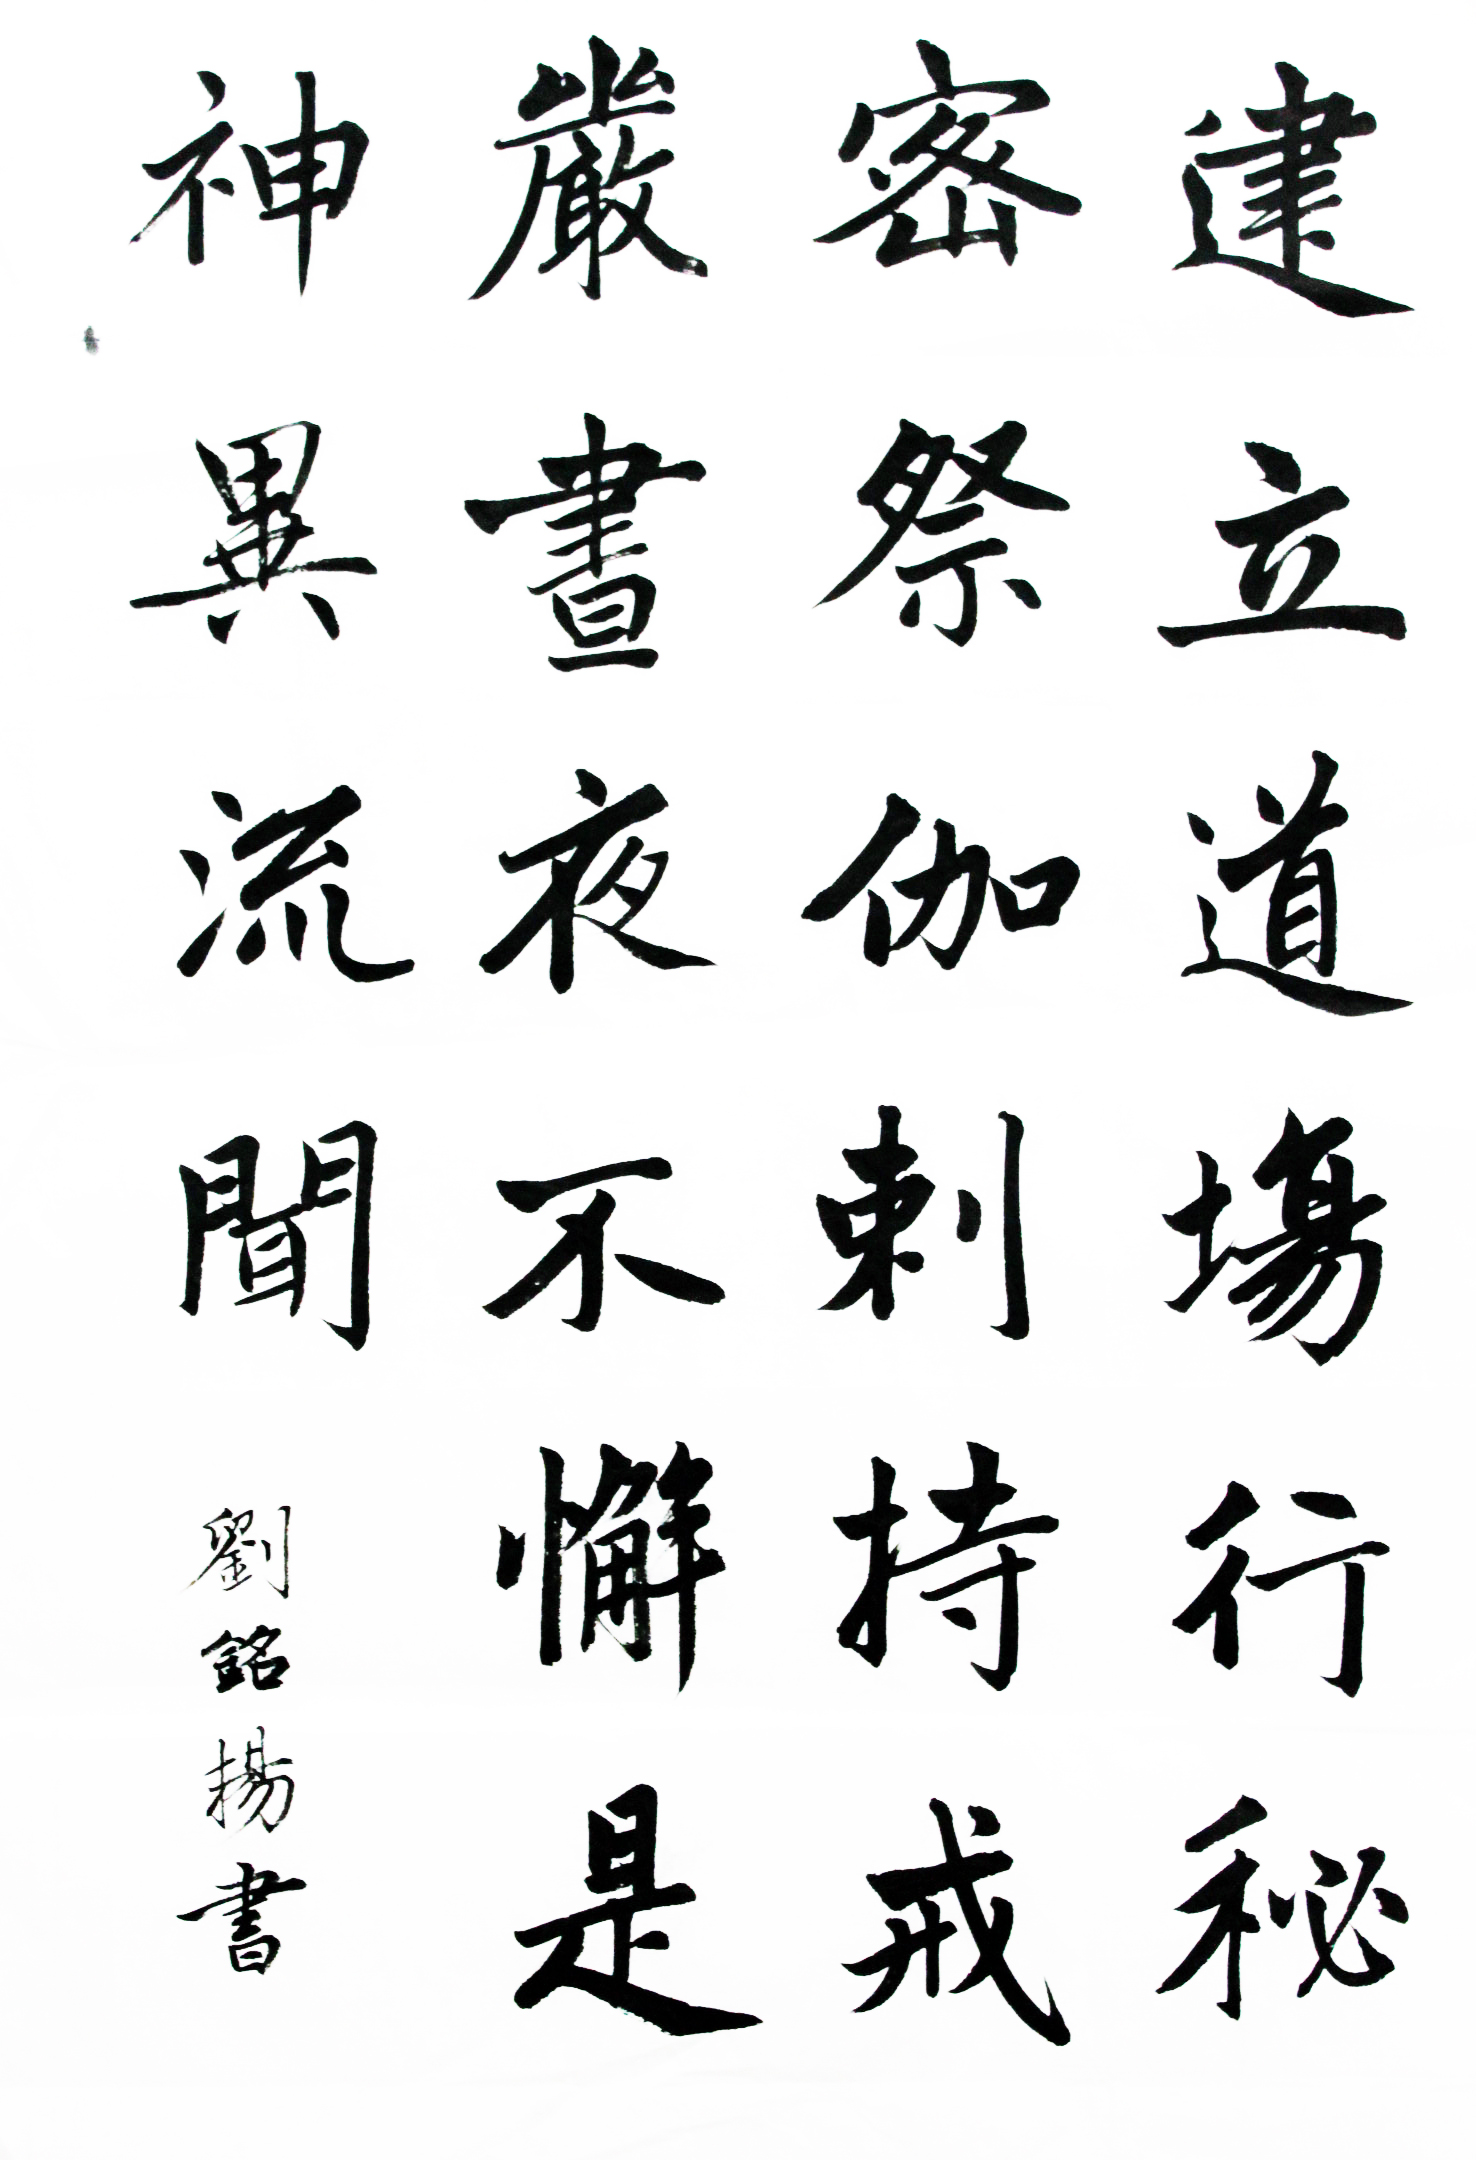 建立道場行秘
密祭伽剌持戒
嚴晝夜不懈是
神異流聞
劉銘揚書